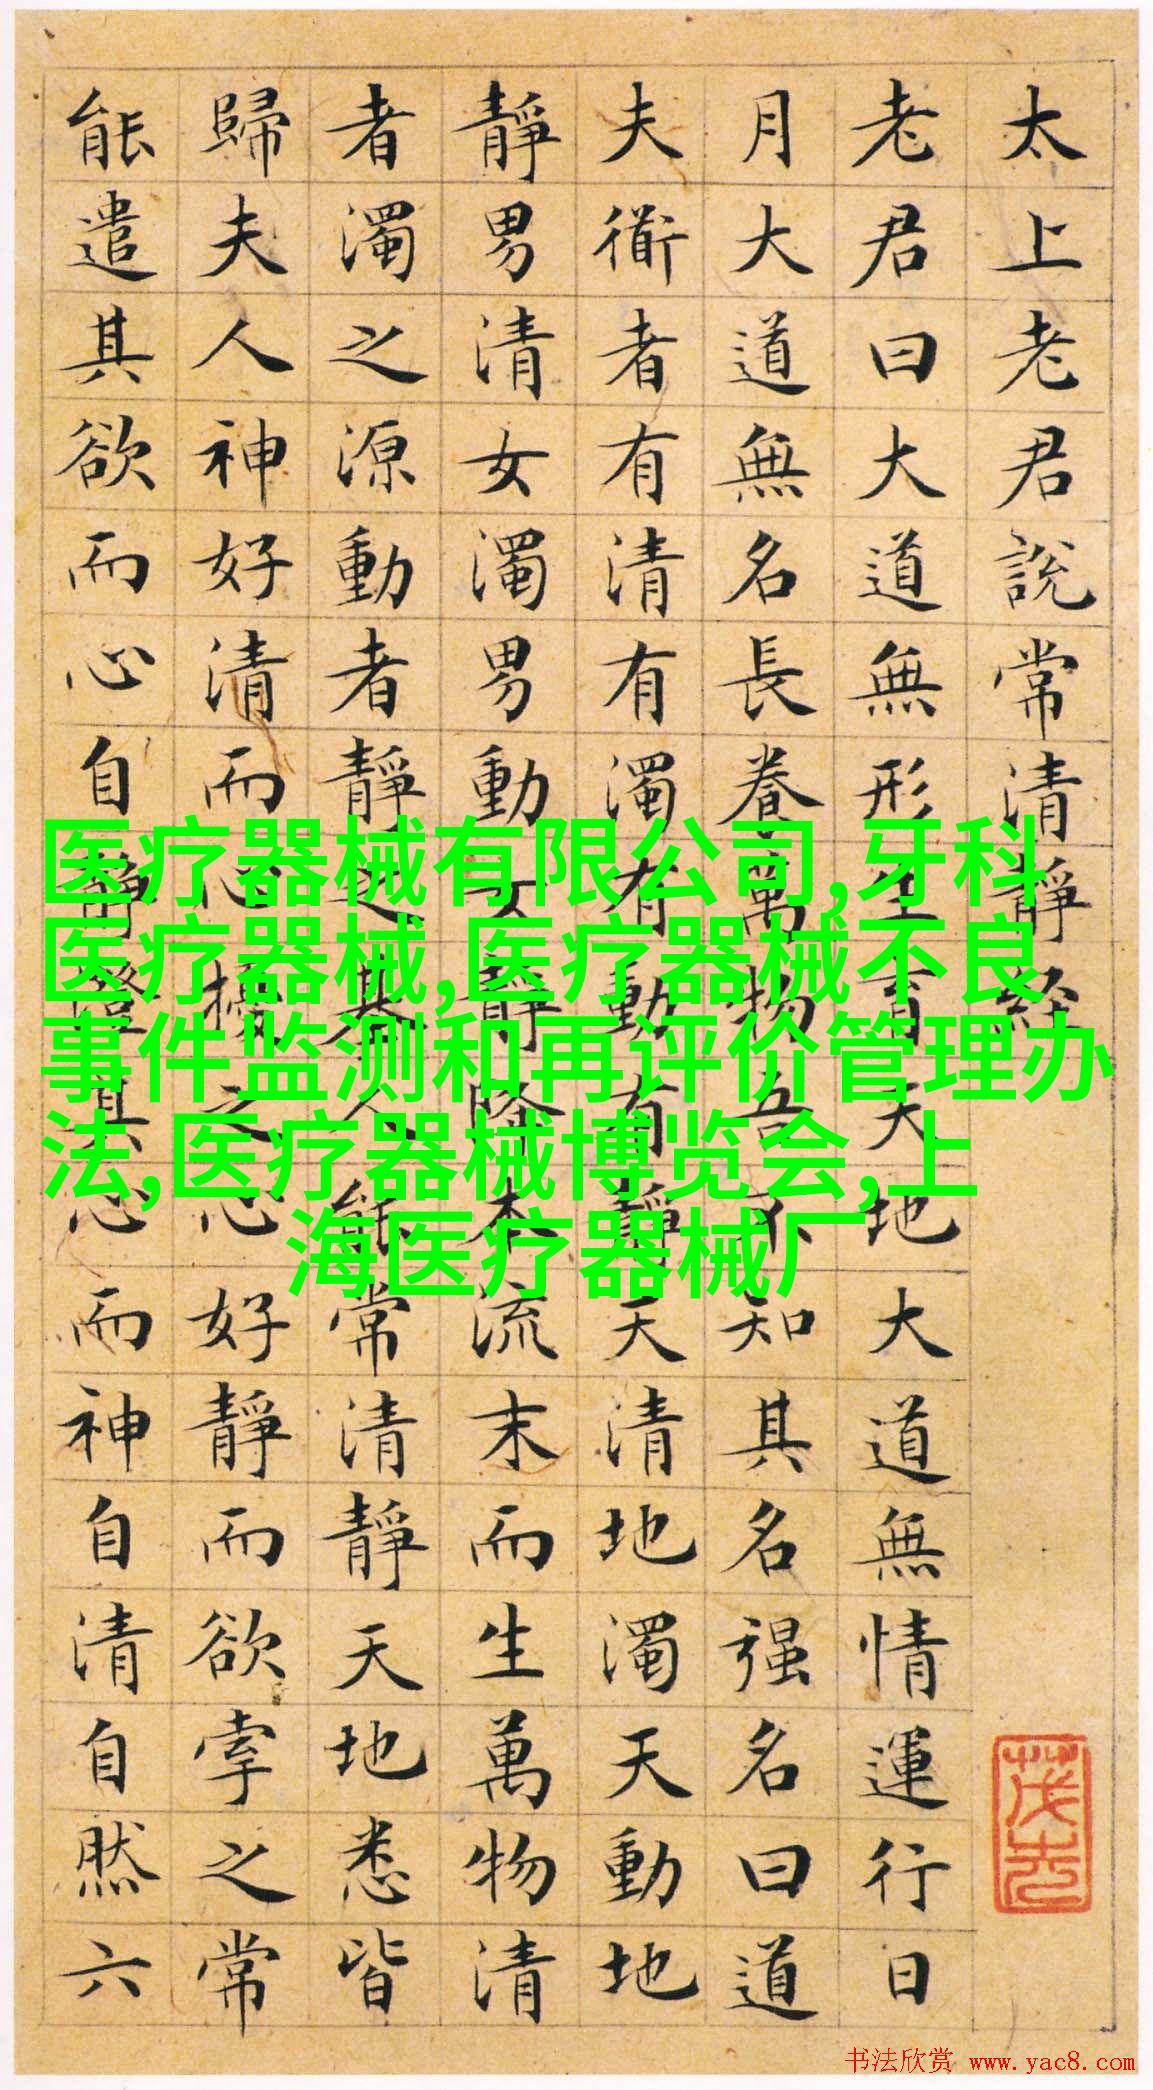 太上老君說常清靜経
老君曰大道無形生育天地大道無情運行日
月大道無名長養萬物吾不知其名强名曰道
夫衜者有清有濁有動有靜天清地濁天動地
靜男清女濁男動女靜降本流末而生萬物清
者濁之源動者靜之基人能常清靜天地悉皆
歸夫人神好清而心擾之心好靜而欲牽之常
能遣其欲而心自靜澄其心而神自清自然六
医疗器械有限公司,牙科
医疗器械,医疗器械不良
事件监测和再评价管理办
法,医疗器械博览会,上
海医疗器械厂
书法欣赏 www.yac8.com